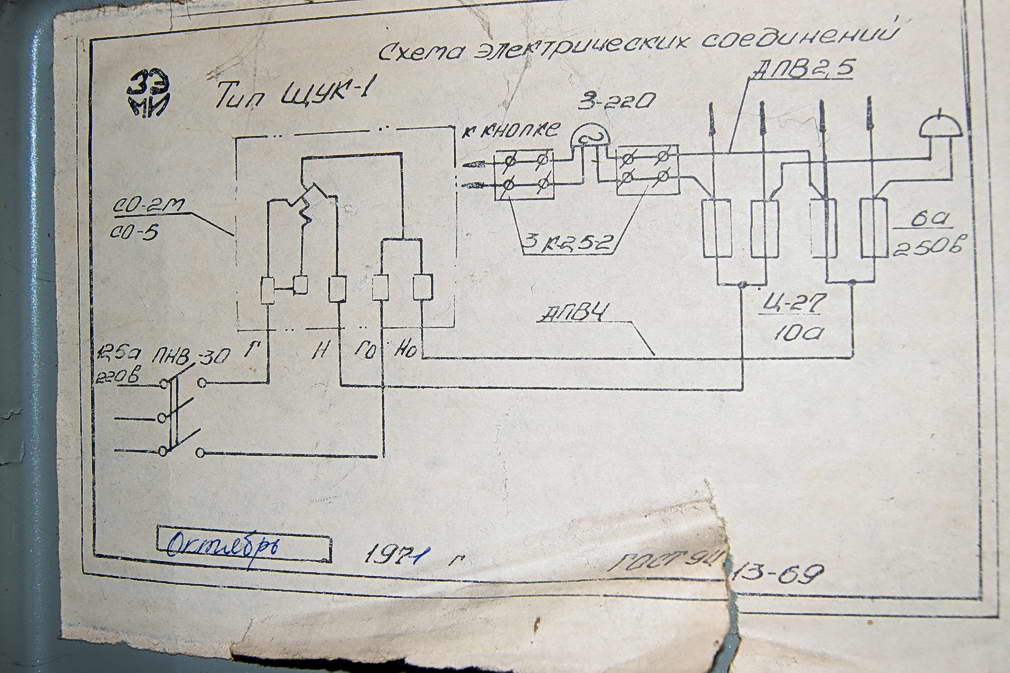 Схема электрических соединений
ЗЭ
МИ
Тип ЩУК-1
АПВ 2,5
З-220
к кнопке
СО-2м
СО-5
3 К25-2
6а
250в
Ц-27
10а
АПВ4
Г
Н
Го
Но
12,5а ПНВ-30
220в
Октябрь
1971 г
ГОСТ 9413-69